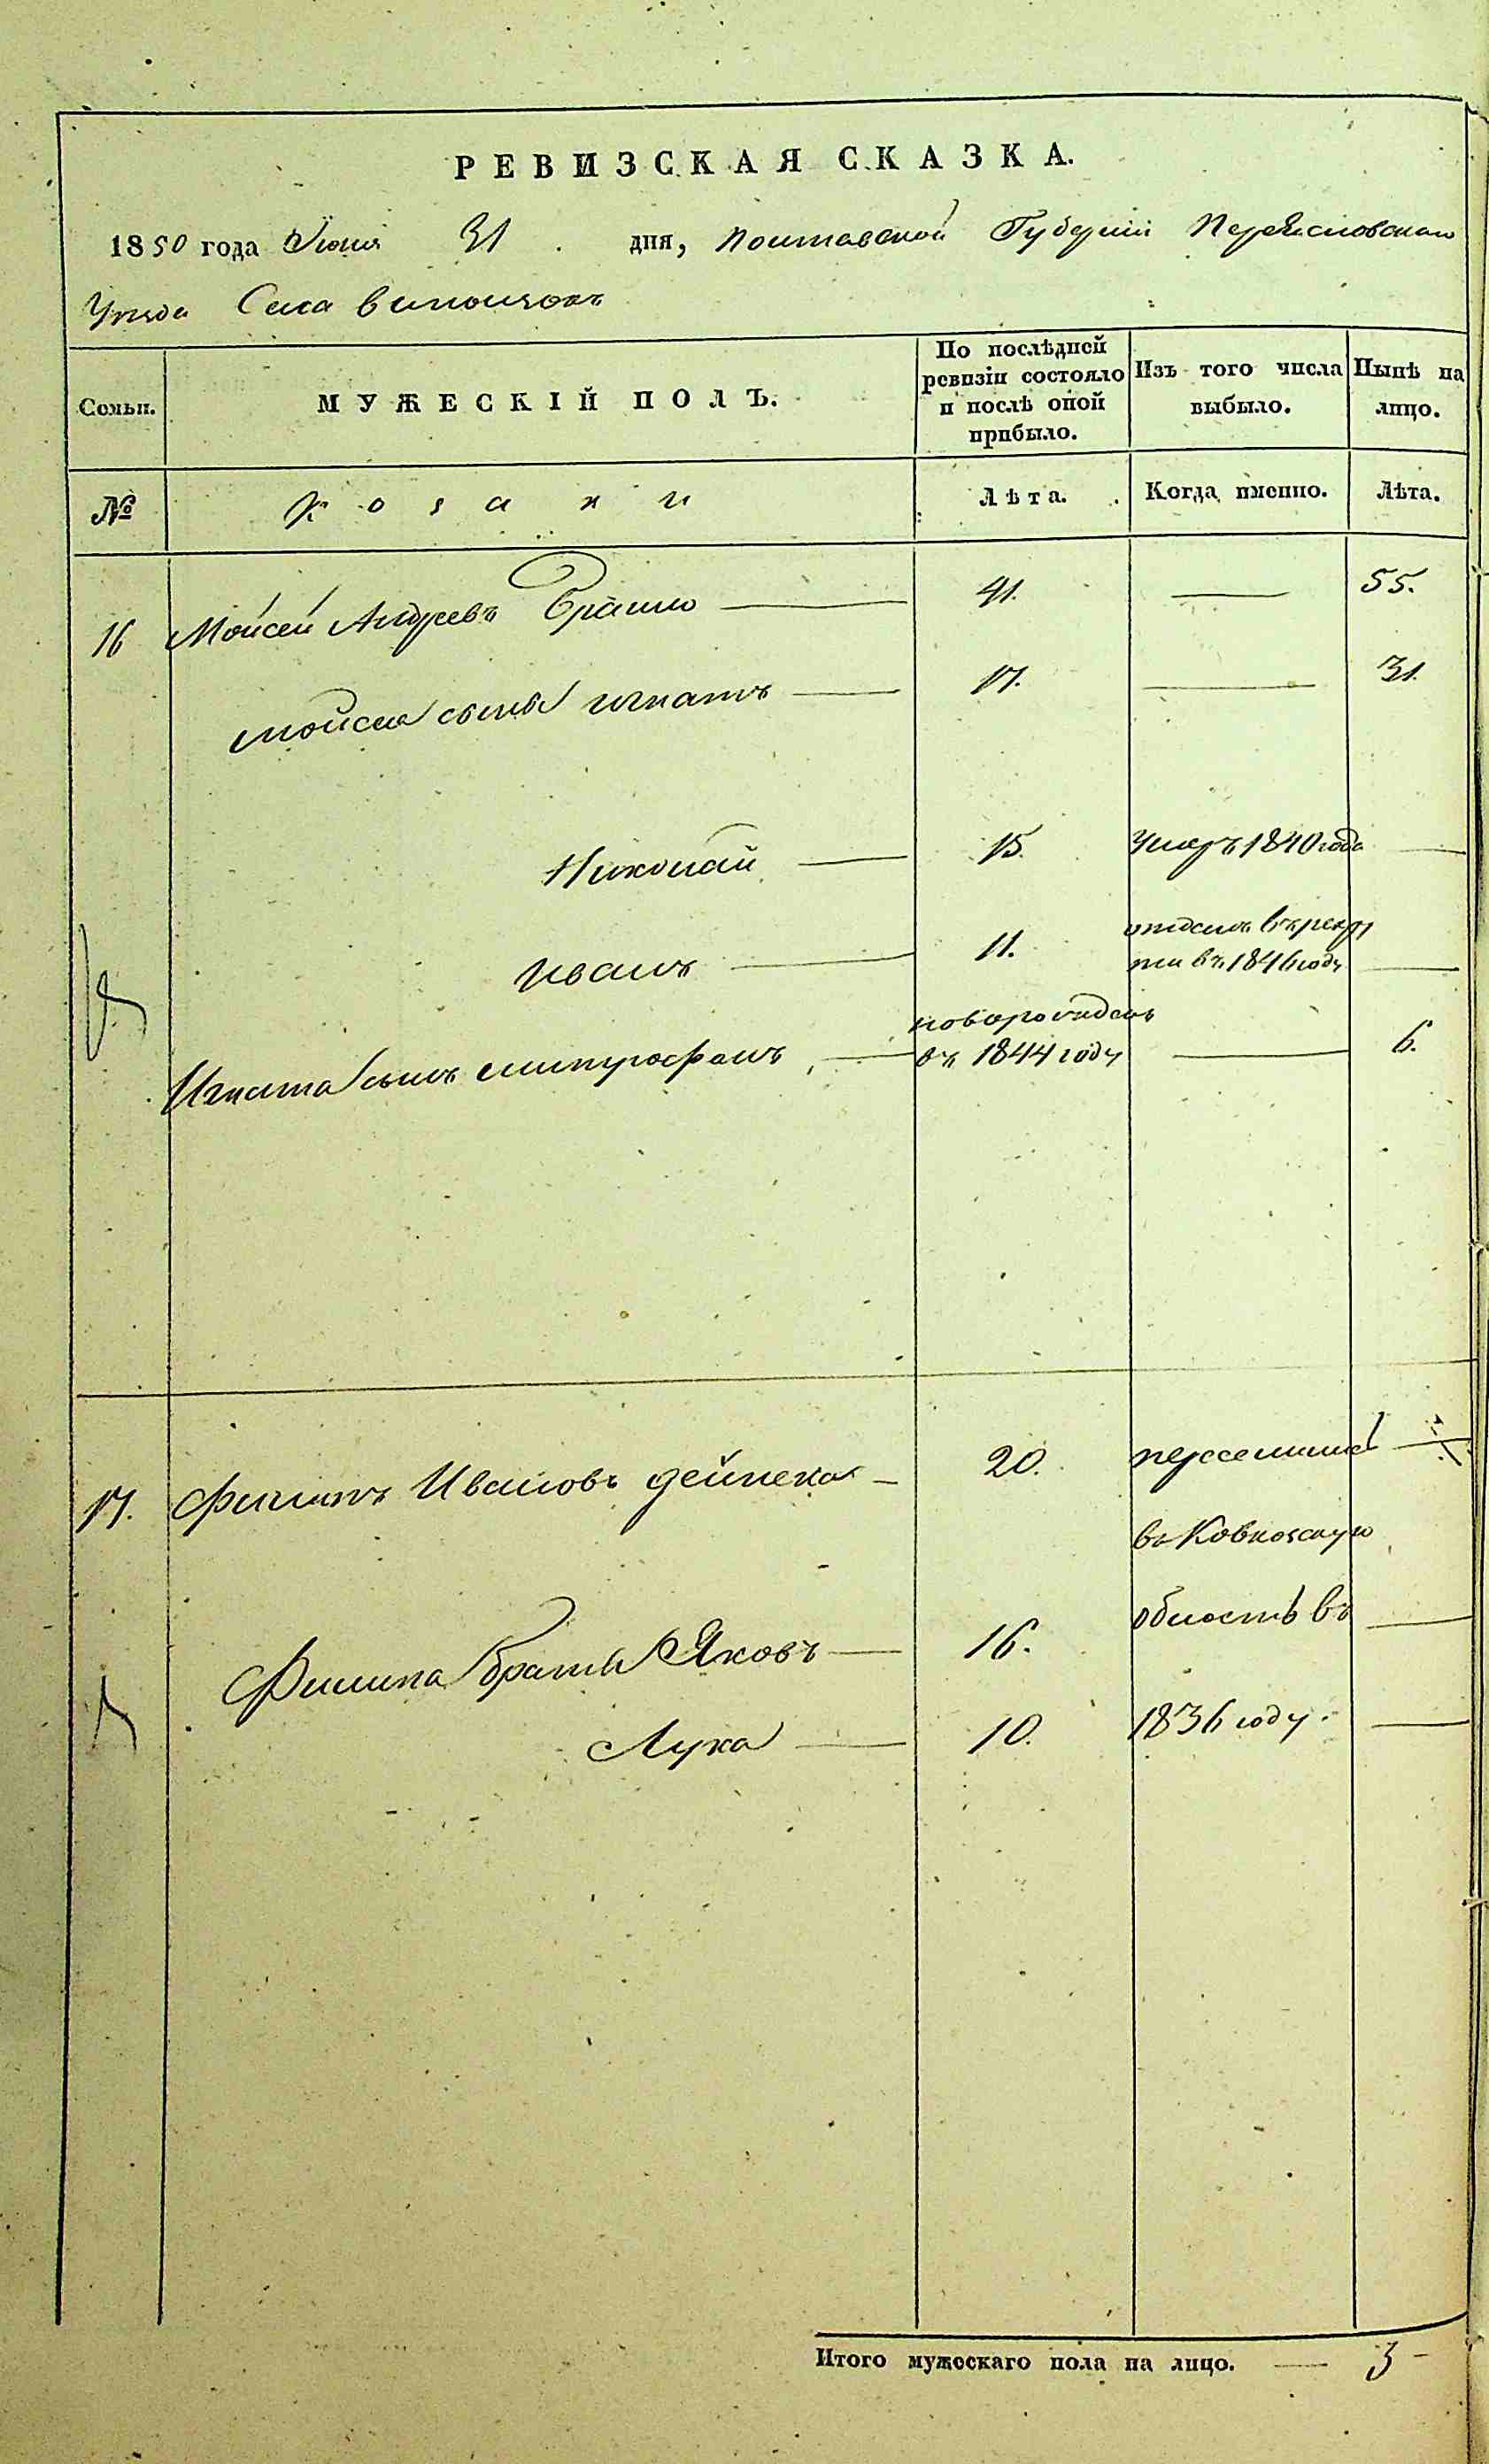 РЕВИЗСКАЯ СКАЗКА.
1850 года Июня 31 дня, Полтавской Губерніи Переяславскаго
Уезда Села
Семьи. МУЖЕСКІЙ ПОЛЪ. По послѣдней ревизіи состояло и послѣ оной прибыло. Изъ того числа выбыло. Нынѣ на лицо.
№ Козаки Лѣта. Когда именно. Лѣта.
16 Мойсей Андреевъ 41. 55.
Мойсея сыны Игнатъ 17. 31.
Николай 15. Умеръ 1840 года
Иванъ 11. отданъ въ рекруты въ 1846 году
Игната сынъ Митрофанъ новорожденъ въ 1844 году 6.
17. Филипъ Ивановъ Дейнека 20. переселились
въ
Филипа братья Яковъ 16. область въ
Лука 10. 1836 году.
Итого мужескаго пола на лицо. 3